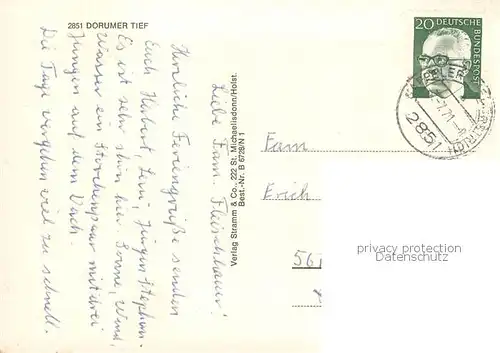 2851 DORUMER TIEF
Liebe Fam. Fleischhauer!
Herzliche Feriengrüße senden
Euch Hubert, Jürgen, Stephan.
Es ist sehr schön hier. Sonne, Wind,
Wasser ein Storchenpaar mit drei
Jungen auf dem Dach.
Die Tage vergehen viel zu schnell.
Verlag Stramm & Co., 222 St. Michaelisdonn/Holst.
Best.-Nr. B 6728/N 1
20 DEUTSCHE BUNDESPOST
2851
Fam.
Erich
privacy protection
Datenschutz